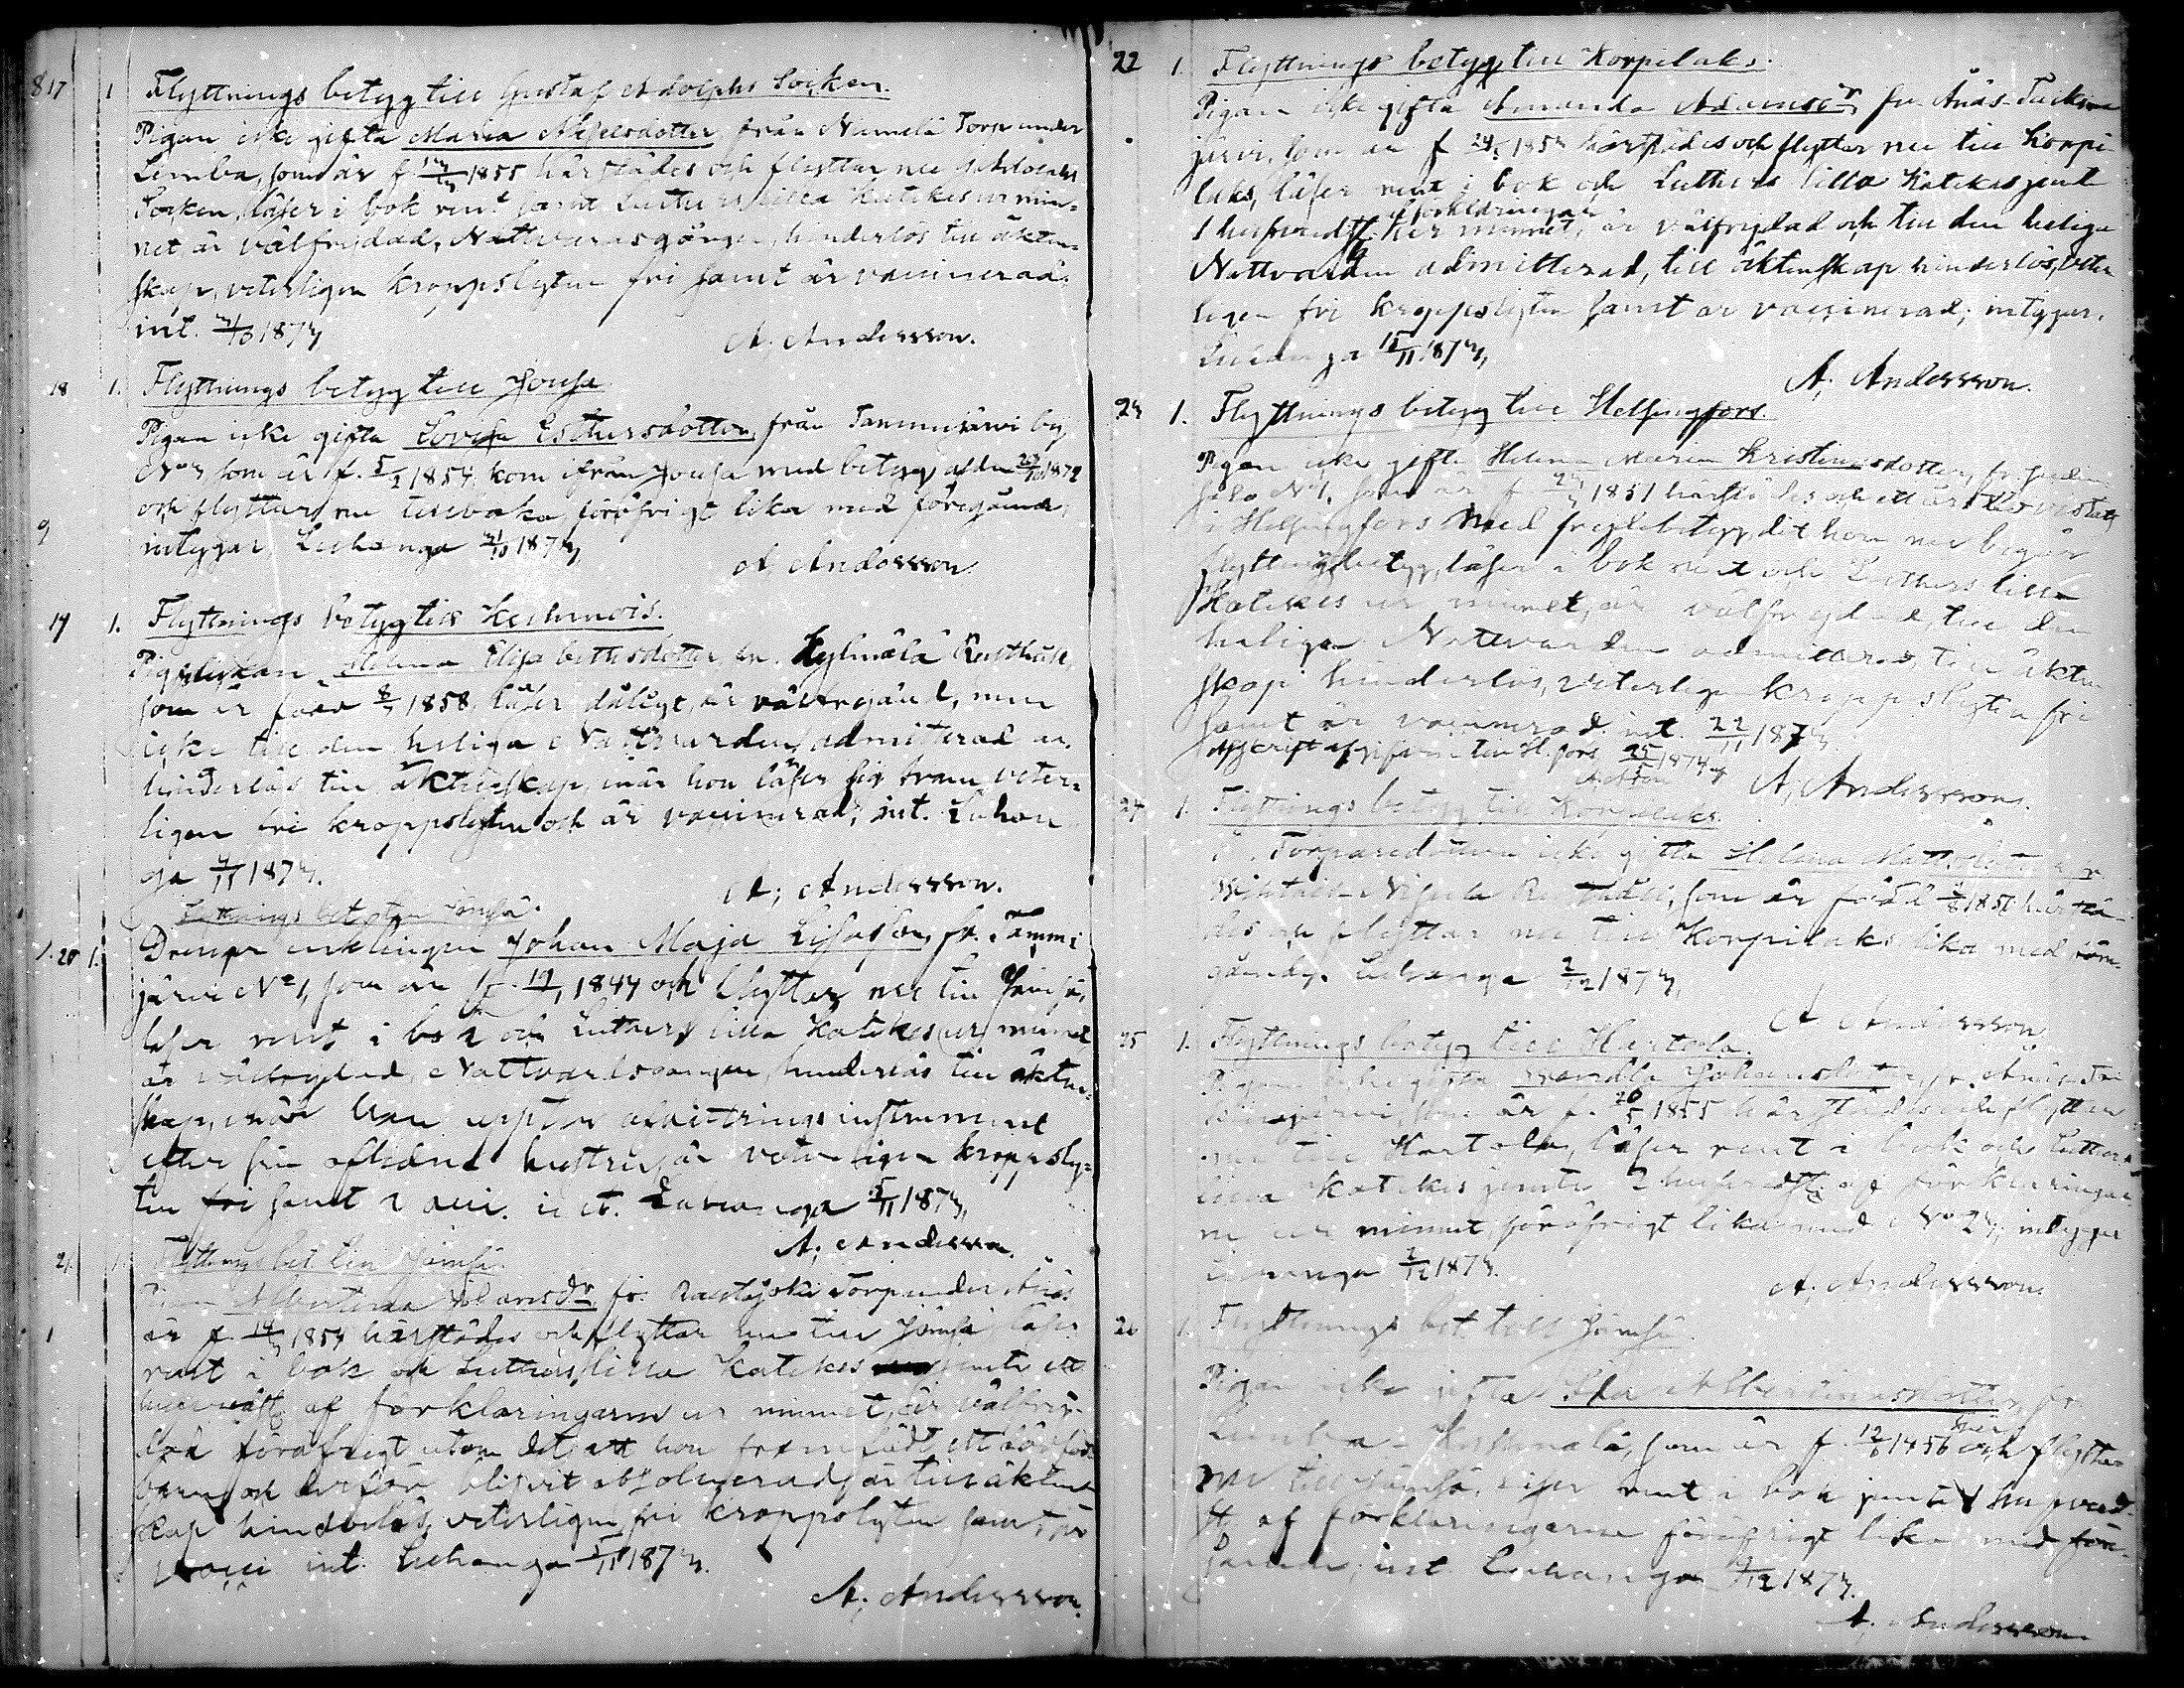 817 1 Flyttnings betyg till Gustaf Adolphs Socken.
Pigan icke gifta Maria Axelsdotter från Niemelä Torp under
Lemba, som är f. 1855 härstädes och flyttar nu G. Adolphs
Socken, läser i bok rent samt Luthers lilla Katekes ur min-
net är välfrejdad, Nattvardsgången, hinderlös till äkten-
skap, veterligen kroppslyten fri samt är vaccinerad.
int. 1873
A. Andersson.
18 1. Flyttnings betyg till Joutsa
Pigan icke gifta Lovisa Esthersdotter från Tammijärvi by
No 3 som är f. 5/2 1854, kom ifrån Joutsa med betyg af den 1872
och flyttar nu tillbaka, föröfrigt lika med föregående,
intygar, Luhanga 1873
A. Andersson
19 1. Flyttnings betyg till Keshmois.
Pigflickan Helena Elisabethsdotter fr. Kylmälä Rusthåll,
som är född 8/7 1858, läser dåligt, är välfrejdad, men
icke till den heliga Nattvarden admitterad är
hinderlös till äktenskap, när hon läser sig fram, veter-
ligen fri kroppslyten och är vaccinerad; int. Luhan-
ga 1873.
A. Andersson.
Flyttnings betyg till Jämsä.
20 1. Drengen enklingen Johan Maja Lisasson, fr. Tammi
järvi No 1, som är f. 1844 och flyttar nu till Jämsä,
läser rent i bok och Luthers lilla Katekes ur minnet,
är välfrejdad, Nattvardsgången, hinderlös till äkten-
skap, när han uppter afvittrings instrument
efter sin aflidna hustru, är veterligen kroppsly-
ten fri samt vacci. int. Luhanga 5/11 1873,
A. Andersson.
21. 1. Flyttnings bet. till Jämsä.
Pigan Albertina Adamsdr fr. Torp under Anäs
är f. 1854 härstädes och flyttar nu till Jämsä läser
rent i bok och Luthers lilla Katekes jemte ett
hufvudst. af förklaringarne ur minnet, är välfrej-
dad föröfrigt utom det att hon framfödt ett
barn och derför blifvit absolverad, är till äkten-
skap hinderlös, veterligen fri kroppslyten samt är
vacci int. Luhanga 1873.
A. Andersson.
22 1. Flyttnings betyg till Korpilaks.
Pigan icke gifta Amanda Adamsdr, fr. Anäs-
järvi, som är f. 24 1853 härstädes och flyttar nu till Korpi
laks, läser rent i bok och Luthers lilla Katekes jemte
1 hufvudst. af förklaringar ur minnet, är välfrejdad och till den heliga
Nattvarden admitterad, till äktenskap hinderlös, veter
ligen fri kroppslyten samt är vaccinerad; intygar.
Luhanga 15/11 1873,
A. Andersson.
23 1. Flyttnings betyg till Helsingfors.
Pigan icke gifta Helena Maria Kristinasdotter,
No 1, som är f. 1851 härstädes och
i Helsingfors med frejdebetyg, dit hon nu begär
flyttningsbetyg, läser i bok rent och Luthers lilla
Katekes ur minnet, är välfrejdad, till den
heliga Nattvarden admitterad, till äkten
skap hinderlös, veterligen kroppslyten fri
samt är vaccinerad. int. 22/11 1873
Afskrift afgifven till H.fors 1874
A. Andersson.
24 1. Flyttnings betyg till Korpilaks.
Torparedottern icke gifta Helena
Rusthåll, som är född 1850 härstä-
des och flyttar nu till Korpilaks lika med före-
gående. Luhanga 2/12 1873,
A. Andersson
25 1. Flyttnings betyg till Hartola.
Pigan icke gifta Vendla Johansdotter, fr.
järvi, som är f. 20/5 1855 härstädes och flyttar
nu till Hartola, läser rent i bok och Luthers
lilla Katekes jemte 2 hufvudst. af förklaringar-
ne ur minnet, föröfrigt lika med No 23, intygar
Luhanga 2/12 1873.
A. Andersson.
26 1. Flyttnings bet. till Jämsä.
Pigan icke gifta Ida Albertinasdotter, fr.
Lemba - som är f. 12/6 1856 här och flyttar
nu till Jämsä, läser rent i bok jemte 1 hufvud-
st. af förklaringarne föröfrigt lika med före-
gående; int. Luhanga 1873.
A. Andersson